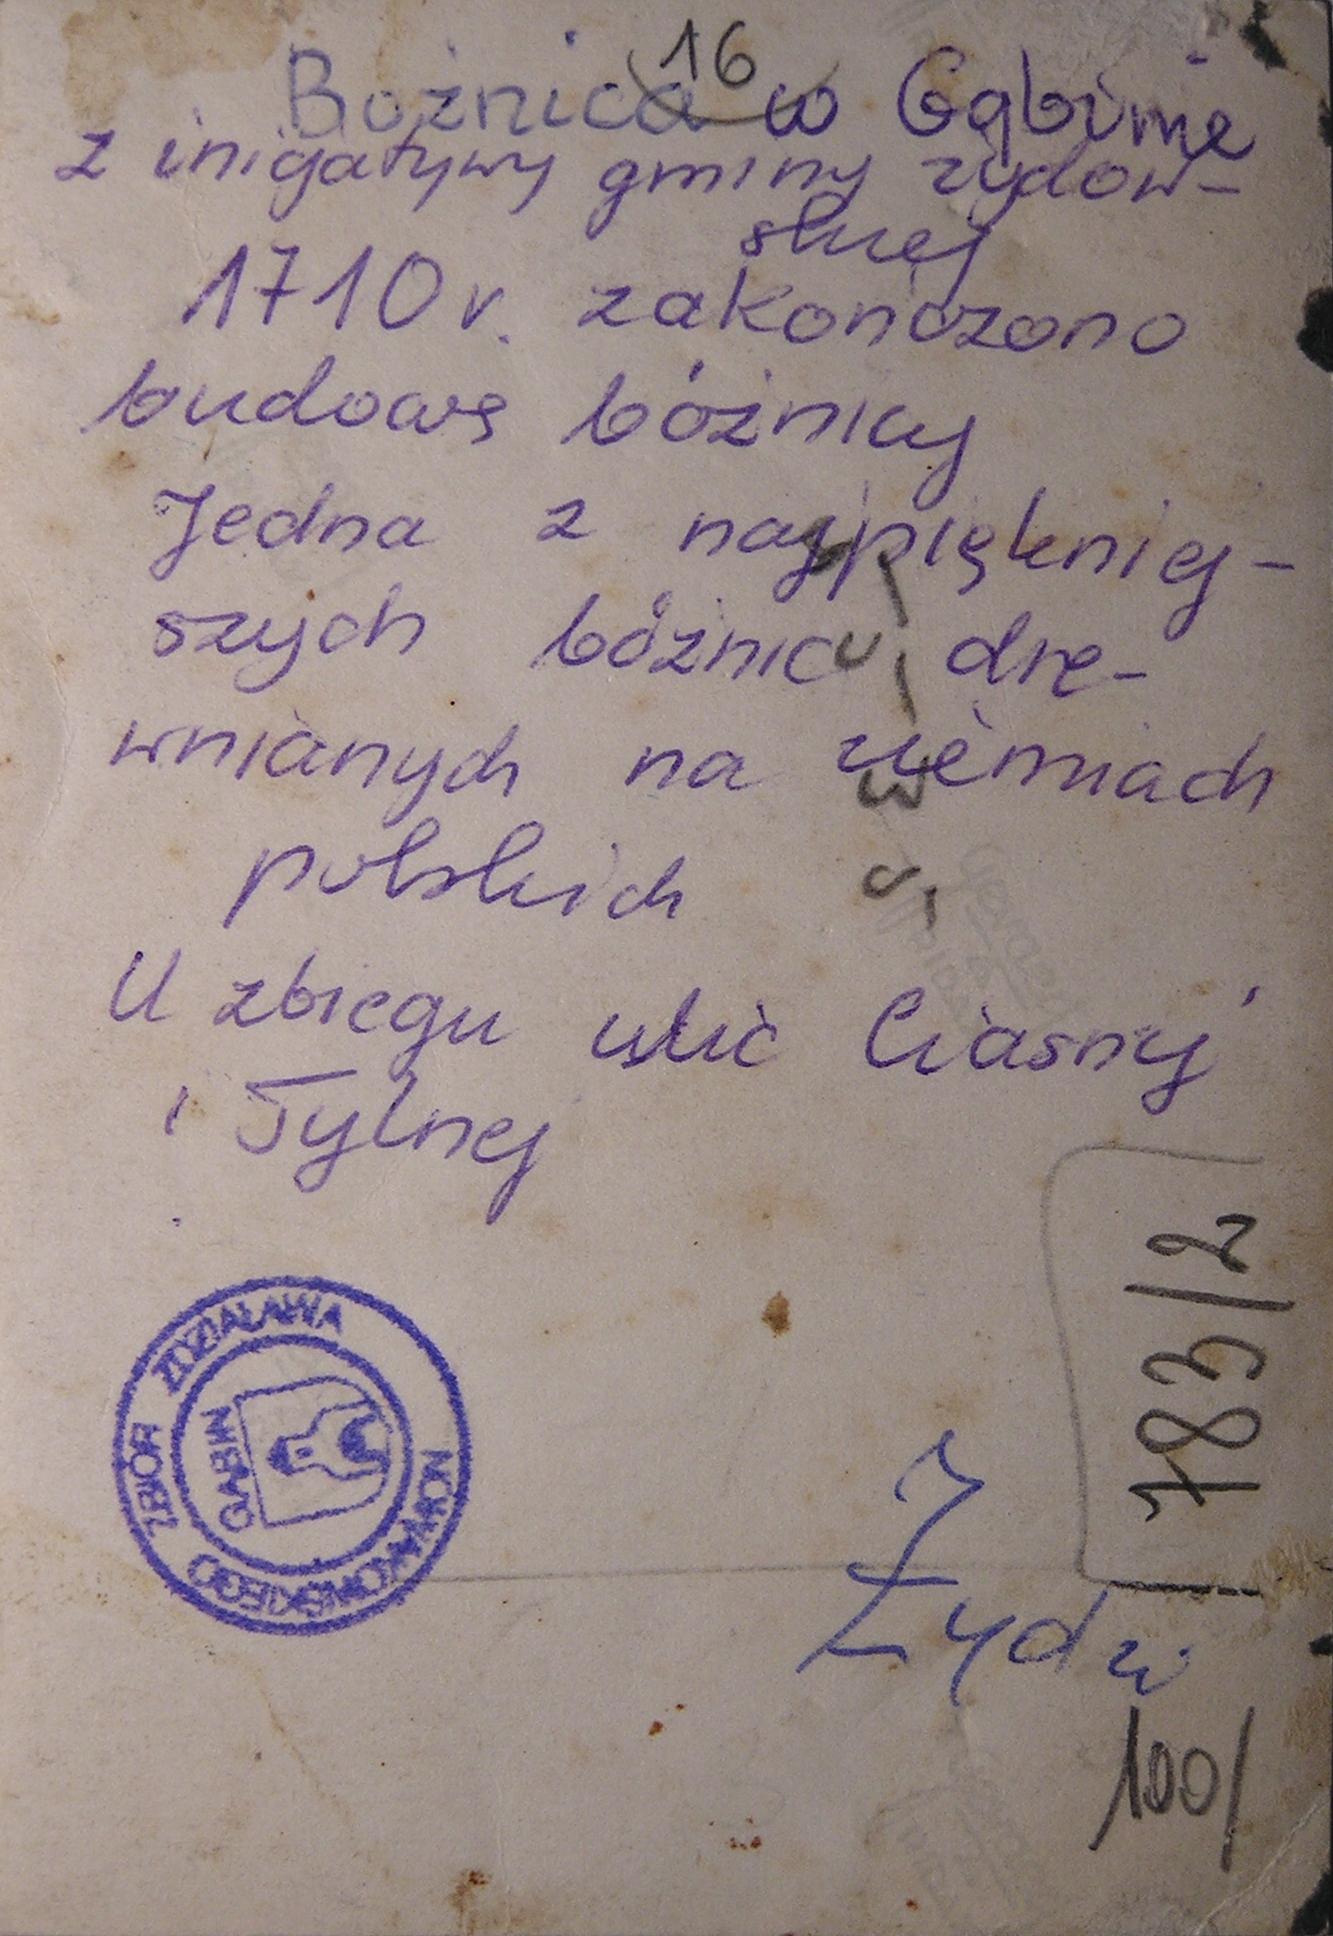 16
Bożnica w Gąbinie
z inigatywy gminy żydow-
skiej
1710 r. zakończono
budowę bóżnicy
Jedna z najpiękniej-
szych bóżnic dre-
wnianych na ziemiach
polskich
U zbiegu ulic Ciasnej
i Tylnej
ZBIÓR ZDZISŁAWA
NOWAKOWSKIEGO
GĄBIN
783/2
Żydzi
100/